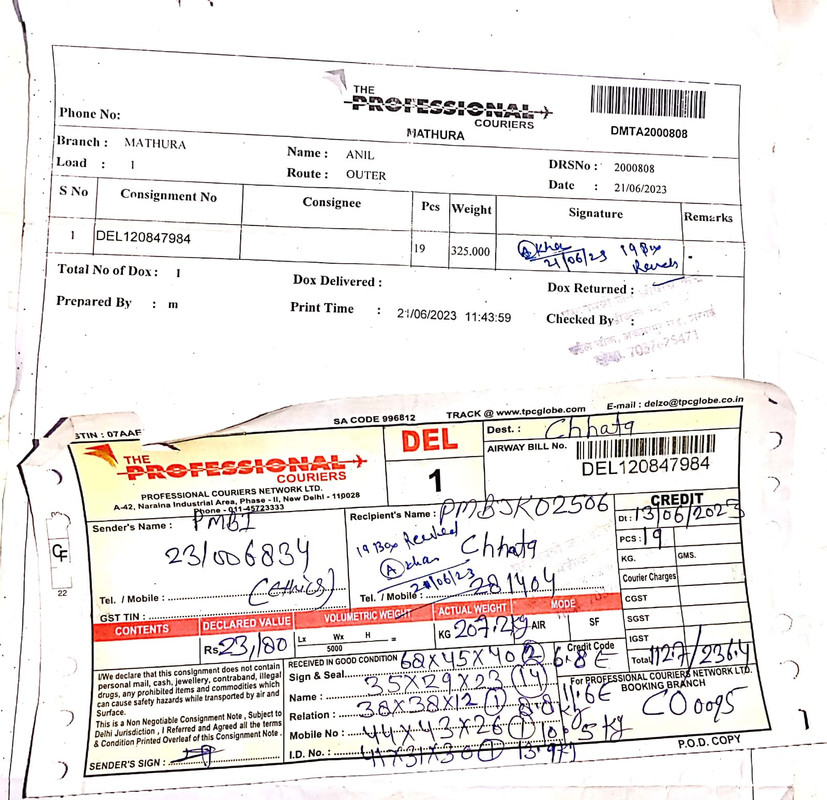 THE
PROFESSIONAL
COURIERS
MATHURA
DMTA2000808
Phone No:
Branch : MATHURA
Name : ANIL
DRSNo : 2000808
Load : 1
Route : OUTER
Date : 21/06/2023
S No Consignment No Consignee Pcs Weight Signature Remarks
1 DEL120847984 19 325.000 A Khan 19 Box
21/06/23
Total No of Dox : 1
Dox Delivered :
Dox Returned :
Prepared By : m
Print Time : 21/06/2023 11:43:59
Checked By :
SA CODE 996812 TRACK @ www.tpcglobe.com E-mail : delzo@tpcglobe.co.in
STIN : 07AAF
THE
PROFESSIONAL
COURIERS
PROFESSIONAL COURIERS NETWORK LTD.
A-42, Naraina Industrial Area, Phase - II, New Delhi - 110028
Phone - 011-45723333
DEL
1
Dest. : Chhata
AIRWAY BILL No.
DEL120847984
Sender's Name : PMBI
23/006834
Tel. / Mobile :
GST TIN :
Recipient's Name : PMBJK02506
19 Box
A Khan Chhata
21/06/23
Tel. / Mobile : 281404
CREDIT
Dt : 13/06/2023
PCS : 19
KG. GMS.
Courier Charges
CGST
SGST
IGST
Total 1127/236.4
CF
22
CONTENTS DECLARED VALUE VOLUMETRIC WEIGHT ACTUAL WEIGHT MODE
Rs 23,180
Lx Wx H =
5000
KG 207.2kg AIR SF
I/We declare that this consignment does not contain
personal mail, cash, jewellery, contraband, illegal
drugs, any prohibited items and commodities which
can cause safety hazards while transported by air and
Surface.
This is a Non Negotiable Consignment Note , Subject to
Delhi Jurisdiction , I Referred and Agreed all the terms
& Condition Printed Overleaf of this Consignment Note .
SENDER'S SIGN :
RECEIVED IN GOOD CONDITION 68X45X40 2 6.8E
Sign & Seal 35X29X23 14
Name : 38X38X12 1 8.8kg
Relation : 44X43X26 1 10.5kg
Mobile No :
I.D. No : 41X31X30 1 13.9kg
Credit Code
11.6E
For PROFESSIONAL COURIERS NETWORK LTD.
BOOKING BRANCH
CO0095
P.O.D. COPY